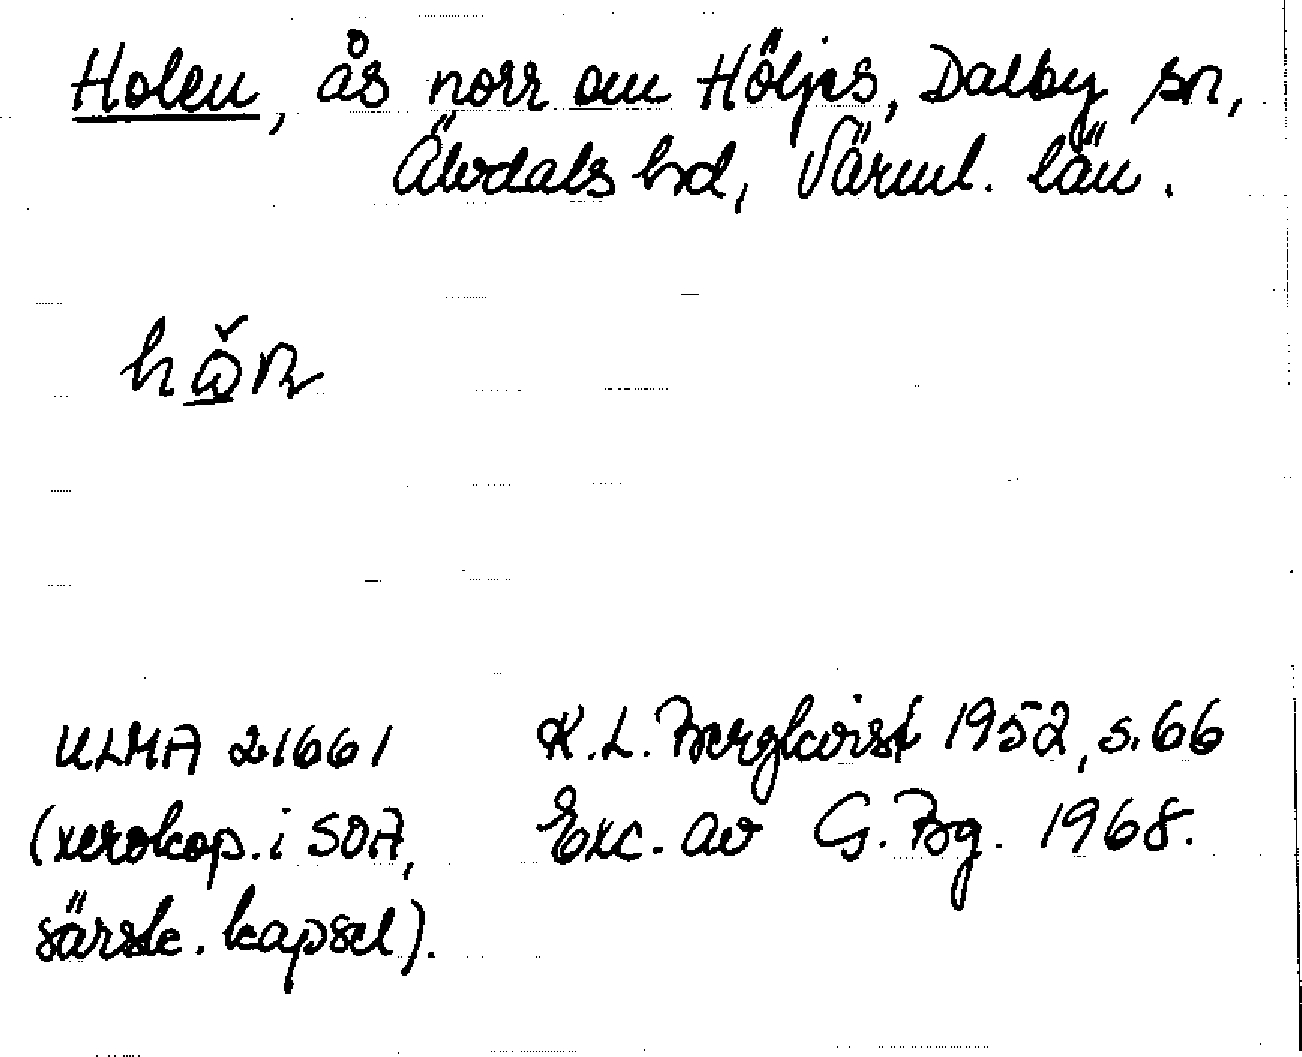 Holen, ås norr om Höljes, Dalby sn,
Älvdals hd, Värml. län.
ULMA 21661
K.L. Bergkvist 1952, s. 66
(xerokop. i SOA,
Exc. av G. Bg. 1968.
särsk. kapsel).